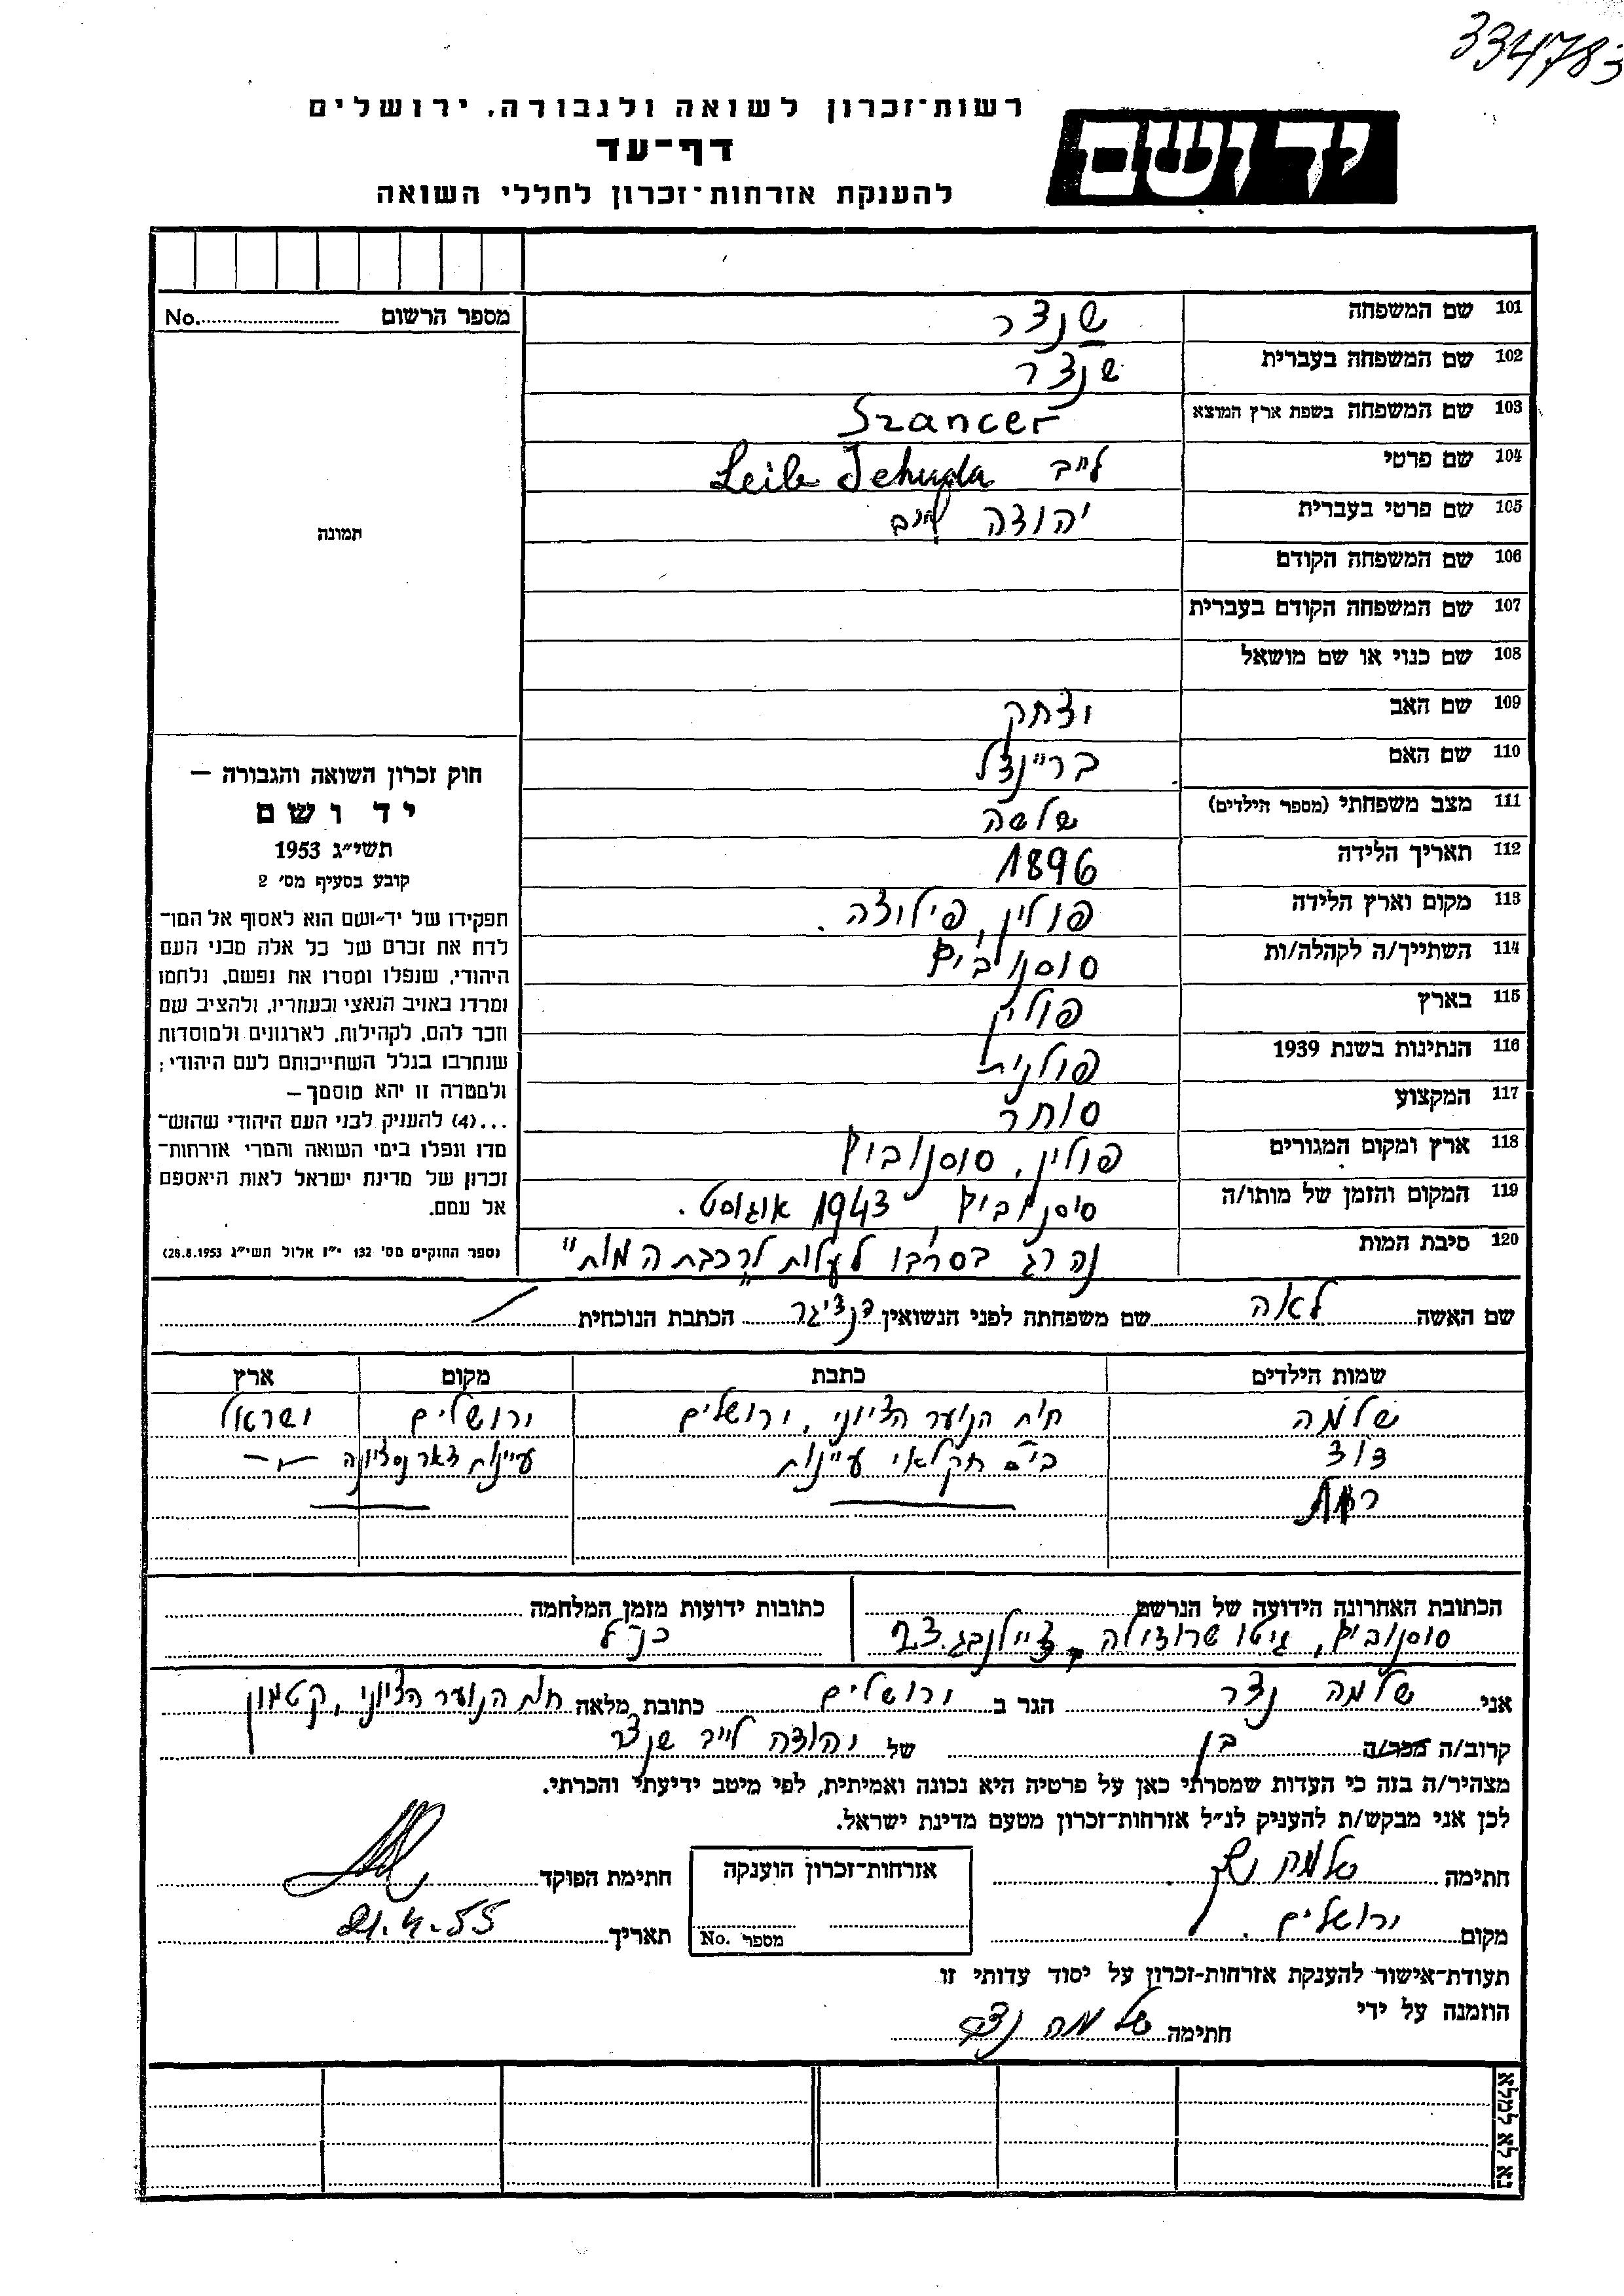 334783
רשות־זכרון לשואה ולגבורה, ירושלים
דף־עד
להענקת אזרחות־זכרון לחללי השואה
יד ושם
מספר הרשום No.
תמונה
101 שם המשפחה שנצר
102 שם המשפחה בעברית שנצר
103 שם המשפחה בשפת ארץ המוצא Szancer
104 שם פרטי לייב Leib Jehuda
105 שם פרטי בעברית יהודה לייב
106 שם המשפחה הקודם
107 שם המשפחה הקודם בעברית
108 שם כנוי או שם מושאל
109 שם האב יצחק
110 שם האם בריינדל
111 מצב משפחתי (מספר הילדים) שלשה
112 תאריך הלידה 1896
113 מקום וארץ הלידה פולין, פילצה.
114 השתייך/ה לקהלה/ות סוסנוביץ
115 בארץ פולין
116 הנתינות בשנת 1939 פולנית
117 המקצוע סוחר
118 ארץ ומקום המגורים פולין, סוסנוביץ
119 המקום והזמן של מותו/ה סוסנוביץ, 1943 אוגוסט.
120 סיבת המות נהרג בסרבו לעלות ל"רכבת המות"
חוק זכרון השואה והגבורה —
יד ושם
תשי״ג 1953
קובע בסעיף מס׳ 2
תפקידו של יד־ושם הוא לאסוף אל המו־
לדת את זכרם של כל אלה מבני העם
היהודי, שנפלו ומסרו את נפשם, נלחמו
ומרדו באויב הנאצי ובעוזריו, ולהציב שם
וזכר להם, לקהילות, לארגונים ולמוסדות
שנחרבו בגלל השתייכותם לעם היהודי;
ולמטרה זו יהא מוסמך—
...(4) להעניק לבני העם היהודי שהוש־
מדו ונפלו בימי השואה והמרי אזרחות־
זכרון של מדינת ישראל לאות היאספם
אל עמם.
(ספר החוקים מס׳ 132 י״ז אלול תשי״ג 28.8.1953)
שם האשה לאה שם משפחתה לפני הנשואין דנציגר הכתבת הנוכחית
שמות הילדים כתבת מקום ארץ
שלמה חות הנוער הציוני, ירושלים ירושלים ישראל
דוד בי"ס חקלאי עיינות עיינות דאר נס ציונה —"—
רות
הכתובת האחרונה הידועה של הנרשם
סוסנוביץ, גיטו שרודולה
כתובות ידועות מזמן המלחמה
כנ"ל
אני שלמה נצר הגר ב ירושלים כתובת מלאה חות הנוער הציוני, קטמון
קרוב/ה מכר/ה בן של יהודה לייב שנצר
מצהיר/ה בזה כי העדות שמסרתי כאן על פרטיה היא נכונה ואמיתית, לפי מיטב ידיעתי והכרתי.
לכן אני מבקש/ת להעניק לנ״ל אזרחות־זכרון מטעם מדינת ישראל.
חתימה שלמה נצר
אזרחות־זכרון הוענקה
מספר No.
חתימת הפוקד
מקום ירושלים.
תאריך 21.4.55
תעודת־אישור להענקת אזרחות־זכרון על יסוד עדותי זו
הוזמנה על ידי
חתימה שלמה נצר
נא לא למלא